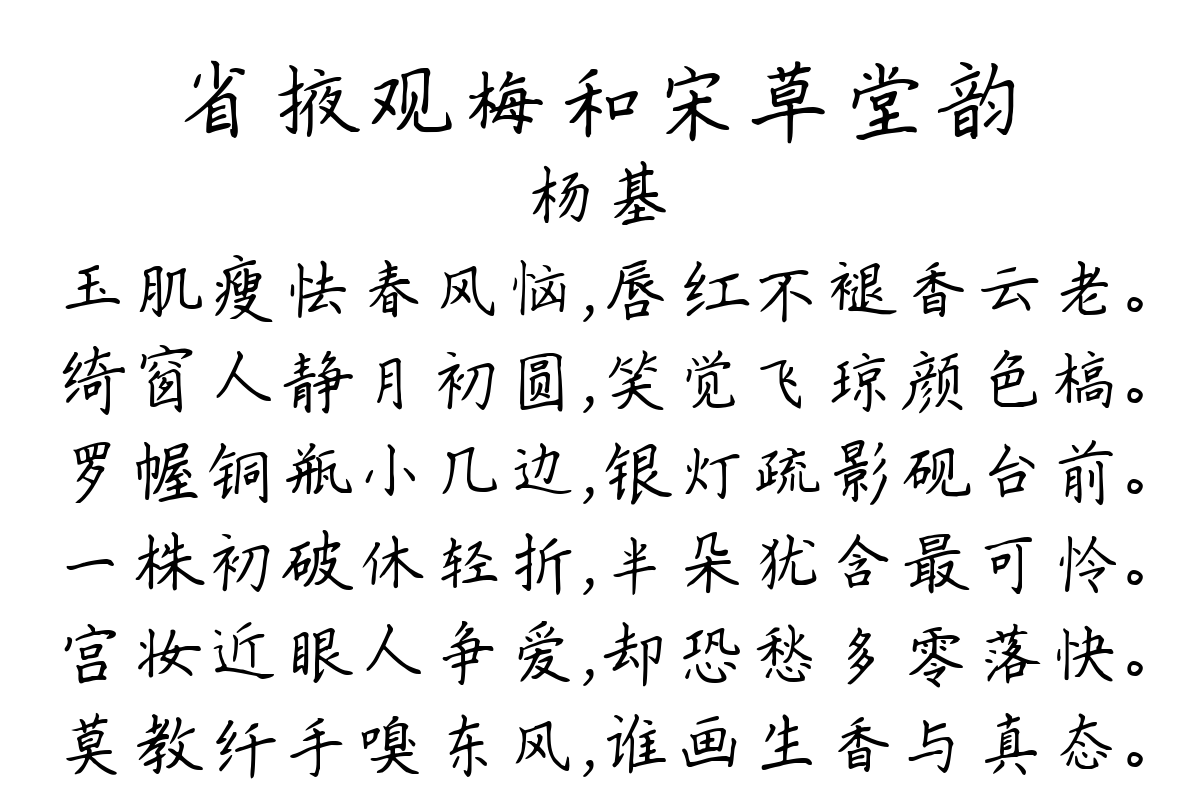 省掖观梅和宋草堂韵
杨基
玉肌瘦怯春风恼,唇红不褪香云老。
绮窗人静月初圆,笑觉飞琼颜色槁。
罗幄铜瓶小几边,银灯疏影砚台前。
一株初破休轻折,半朵犹含最可怜。
宫妆近眼人争爱,却恐愁多零落快。
莫教纤手嗅东风,谁画生香与真态。